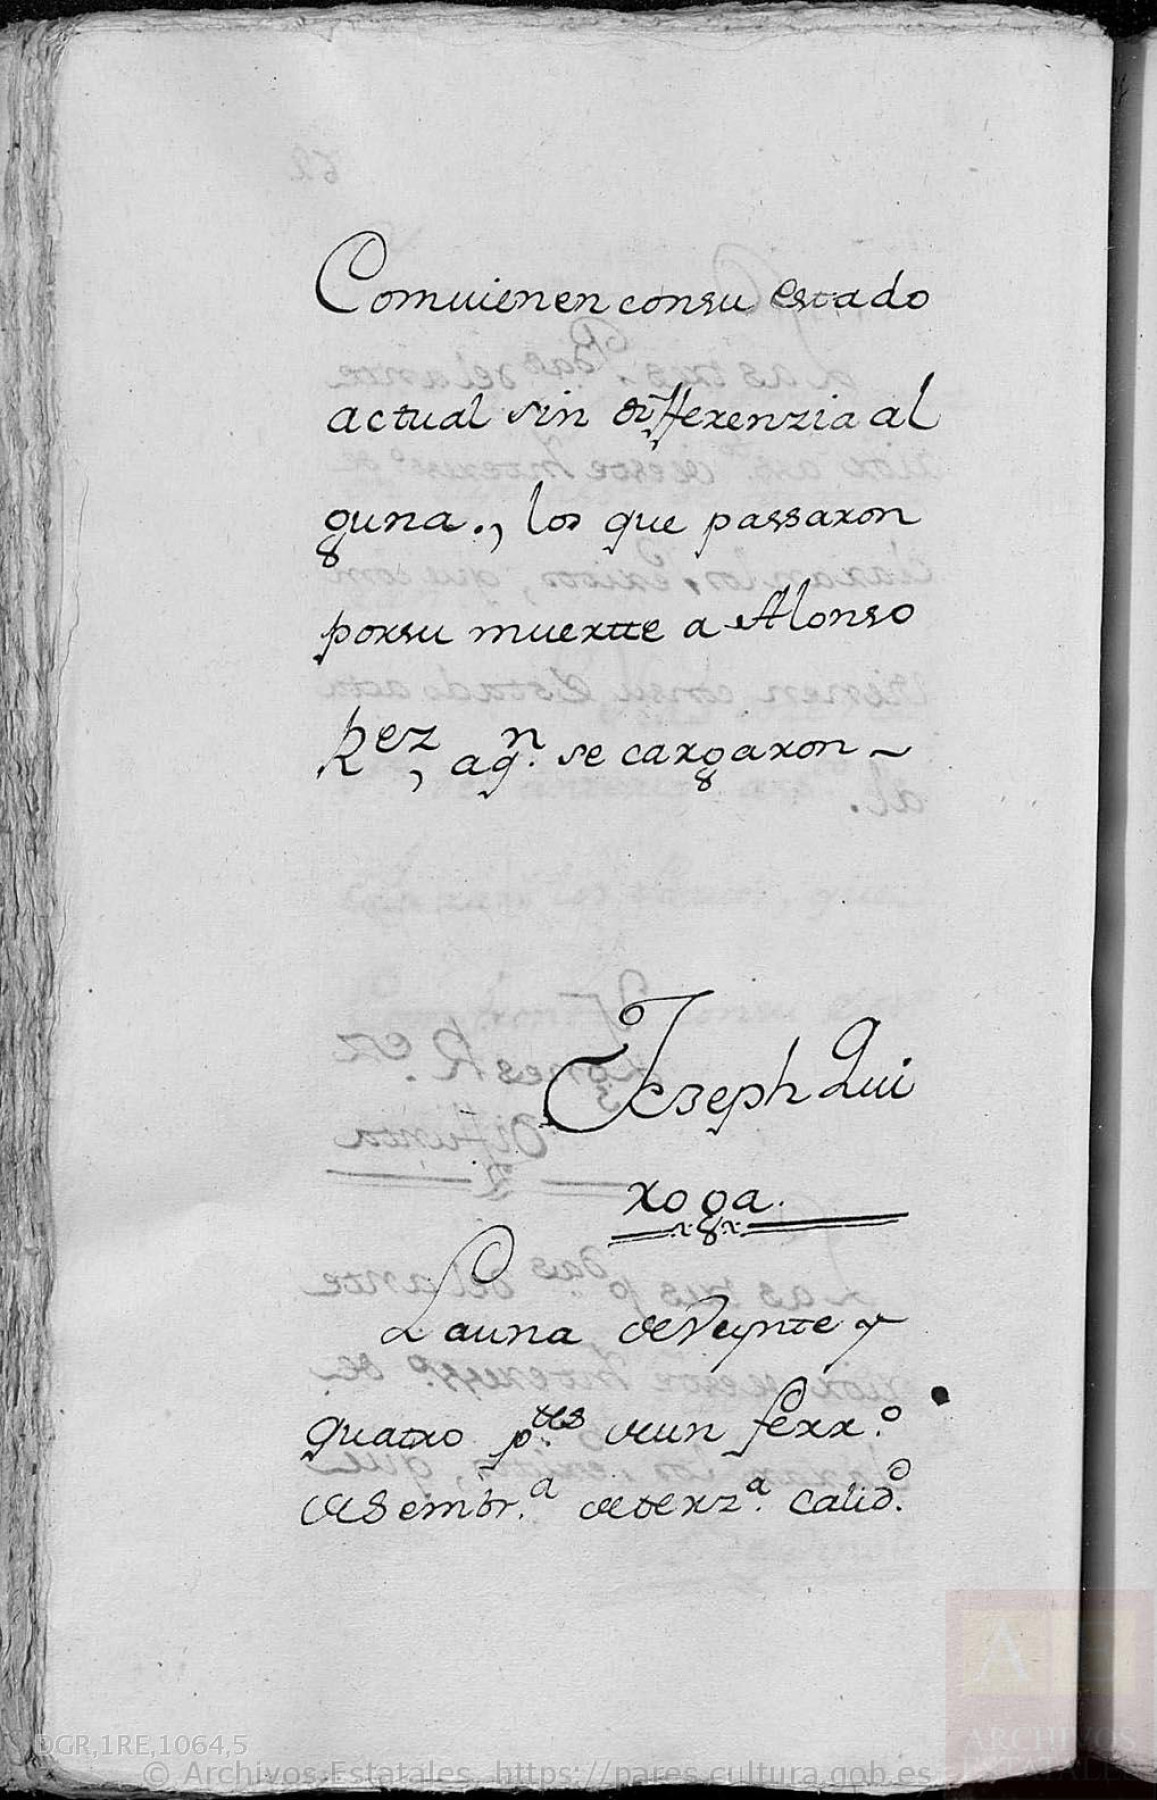 Comuienen consu estado
actual sin differenzia al
guna., los que passaron
porsu muertte a Alonso
Rez, aqn. se cargaron ~
Joseph Qui
roga.
Launa de Veynte y
quatro ptes. de un ferro.
de Sembra. de terza. calido.
DGR,1RE,1064,5
© Archivos Estatales, https://pares.cultura.gob.es
ARCHIVOS
ESTATALES